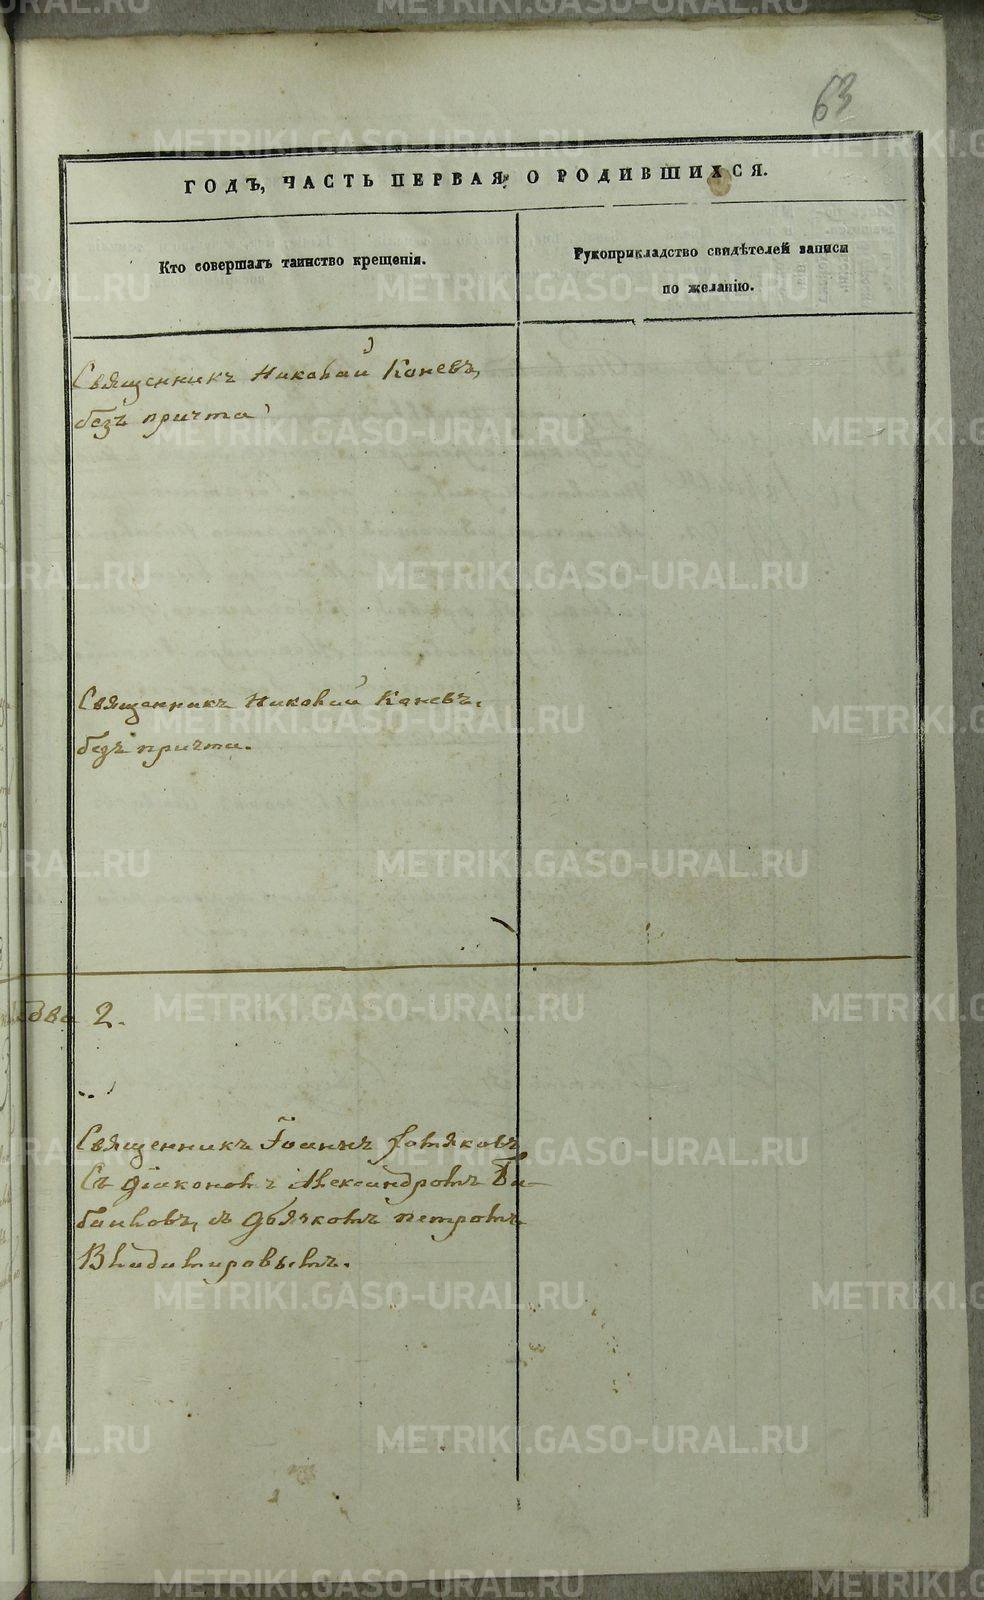 63
ГОДЪ, ЧАСТЬ ПЕРВАЯ, О РОДИВШИХСЯ.
Кто совершалъ таинство крещенія.
Рукоприкладство свидѣтелей записи
по желанію.
Священникъ Николай Коневъ,
безъ причта
Священникъ Николай Коневъ.
безъ причта.
2.
Священникъ Іоаннъ Хотяковъ
Съ діакономъ Александромъ Ба-
баиковъ, съ дьячкомъ петромъ
Владимировымъ.
METRIKI.GASO-URAL.RU